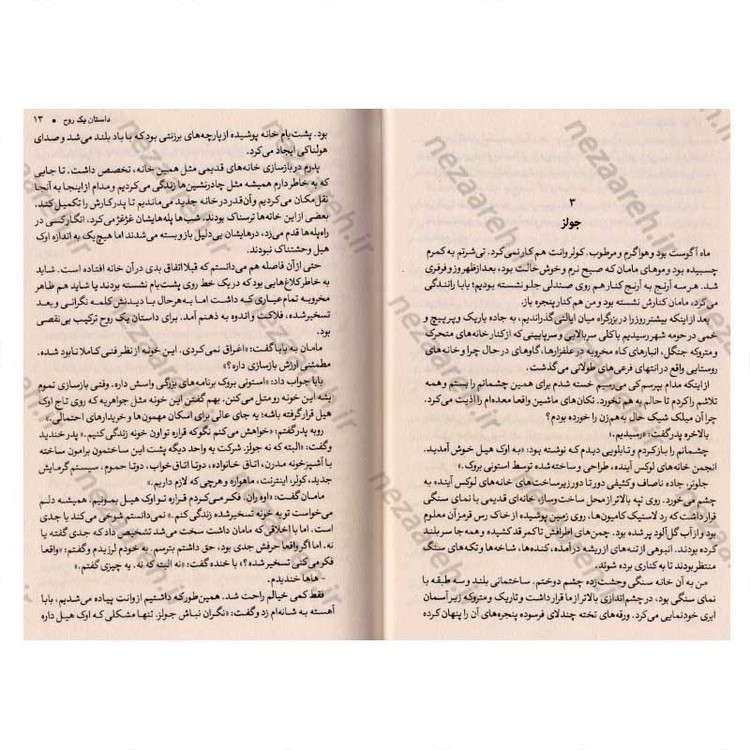 ۳
جولز
ماه آگوست بود و هوا گرم و مرطوب. کولر وانت هم کار نمی‌کرد. تی‌شرتم به کمرم
چسبیده بود و موهای مامان که صبح نرم و خوش حالت بود، بعدازظهر وز و فرفری
شد. هر سه آرنج به آرنج کنار هم روی صندلی جلو نشسته بودیم؛ بابا رانندگی
می‌کرد، مامان کنارش نشسته بود و من هم کنار پنجره باز.
بعد از اینکه بیشتر روز را در بزرگراه میان ایالتی گذراندیم، به جاده باریک و پر پیچ و
خمی در حومه شهر رسیدیم با کلی سربالایی و سرپایینی که از کنار خانه‌های متحرک
و متروکه جنگل، انبارهای کاه مخروبه در علفزارها، گاوهای در حال چرا و خانه‌های
روستایی واقع در انتهای فرعی‌های طولانی می‌گذشت.
از اینکه مدام بپرسم کی می‌رسیم خسته شدم برای همین چشمانم را بستم و همه
تلاشم را کردم تا حالم به هم نخورد. تکان‌های ماشین واقعا معده‌ام را اذیت می‌کرد.
چرا آن میلک شیک حال به‌هم زن را خورده بودم؟
بالاخره پدر گفت: «رسیدیم.»
چشمانم را باز کردم و تابلویی دیدم که نوشته بود: «به اوک هیل خوش آمدید.
انجمن خانه‌های لوکس آینده، طراحی و ساخته شده توسط استونی بروک.»
جلوتر، جاده ناصاف و کثیفی دور تا دور زیرساخت‌های خانه‌های لوکس به آینده
چشم می‌خورد. روی تپه بالاتر از محل ساخت‌وساز، خانه‌ای قدیمی با نمای سنگی
قرار داشت که رد لاستیک کامیون‌ها، روی زمین پوشیده از خاک رس قرمز آن معلوم
بود و از آب گل‌آلود پر شده بود. چمن‌های اطرافش تا کمر قد کشیده و همه جا سر بلند
کرده بودند. انبوهی از تنه‌های از ریشه در آمده، کنده‌ها، شاخه‌ها و تکه‌های سنگ
منتظر بودند تا به کناری برده شوند.
من به آن خانه سنگی وحشت‌زده چشم دوختم. ساختمانی بلند و سه طبقه با
نمای سنگی بود، در چشم‌اندازی بالاتر از ما قرار داشت و تاریک و متروکه زیر آسمان
ابری خودنمایی می‌کرد. ورقه‌های تخته چندلای فرسوده پنجره‌های آن را پنهان کرده
داستان یک روح ■ ۱۳
بود. پشت‌بام خانه پوشیده از پارچه‌های برزنتی بود که با باد بلند می‌شد و صدای
هولناکی ایجاد می‌کرد.
پدرم در بازسازی خانه‌های قدیمی مثل همین خانه، تخصص داشت. تا جایی
که به خاطر دارم همیشه مثل چادرنشین‌ها زندگی می‌کردیم و مدام از اینجا به آنجا
نقل مکان می‌کردیم و آن‌قدر در خانه جدید می‌ماندیم تا پدر کارش را تکمیل کند.
بعضی از این خانه‌ها ترسناک بودند. شب‌ها پله‌هایشان غژغژ می‌کرد، انگار کسی در
راه‌پله‌ها قدم می‌زد، درهایشان بی‌دلیل باز و بسته می‌شدند اما هیچ‌یک به اندازه اوک
هیل وحشتناک نبودند.
حتی از آن فاصله هم می‌دانستم که قبلا اتفاق بدی در آن خانه افتاده است. شاید
به خاطر کلاغ‌هایی که در یک خط روی پشت‌بام نشسته بودند یا شاید هم ظاهر
مخروبه تمام عیاری که داشت اما به‌هرحال با دیدنش کلمه نگرانی و بعد
تسخیر شده، فلاکت و اندوه به ذهنم آمد. برای داستان یک روح ترکیب بی‌نقصی
بود.
مامان به بابا گفت: «اغراق نمی‌کردی. این خونه از نظر فنی کاملا نابود شده.
مطمئنی ارزش بازسازی داره؟»
بابا جواب داد: «استونی بروک برنامه‌های بزرگی واسش داره. وقتی بازسازی تموم
بشه این خونه رو متل می‌کنن. بهم گفتن این خونه مثل جواهریه که روی تاج اوک
هیل قرار گرفته باشه؛ یه جای عالی برای اسکان مهمون‌ها و خریدارهای احتمالی.»
رو به پدر گفتم: «خواهش می‌کنم نگو که قراره تو اون خونه زندگی کنیم.» پدر خندید
و گفت: «البته که نه جولز. شرکت یه واحد دیگه پشت این ساختمون برامون ساخته
با آشپزخونه مدرن، اتاق خانواده، دوتا اتاق خواب، دوتا حموم، سیستم گرمایش
جدید، کولر، اینترنت، ماهواره و هرچی که لازم داریم.»
مامان گفت: «اوه ران. فکر می‌کردم قراره تو اوک هیل بمونیم. همیشه دلم
می‌خواست تو یه خونه تسخیر شده زندگی کنم.» نمی‌دانستم شوخی می‌کند یا جدی
است. اما با اخلاقی که مامان داشت سخت می‌شد تشخیص داد که جدی گفته یا
نه. اما اگر واقعا حرفش جدی بود، حق داشتم بترسم. به خودم لرزیدم و گفتم: «واقعا
فکر می‌کنی تسخیر شده؟» با خنده گفت: «نه البته که نه. یه چیزی گفتم.»
- هاها خندیدم.
فقط کمی خیالم راحت شد. همین‌طور که داشتیم از وانت پیاده می‌شدیم، بابا
آهسته به شانه‌ام زد و گفت: «نگران نباش جولز. تنها مشکلی که اوک هیل داره
nezaareh.ir